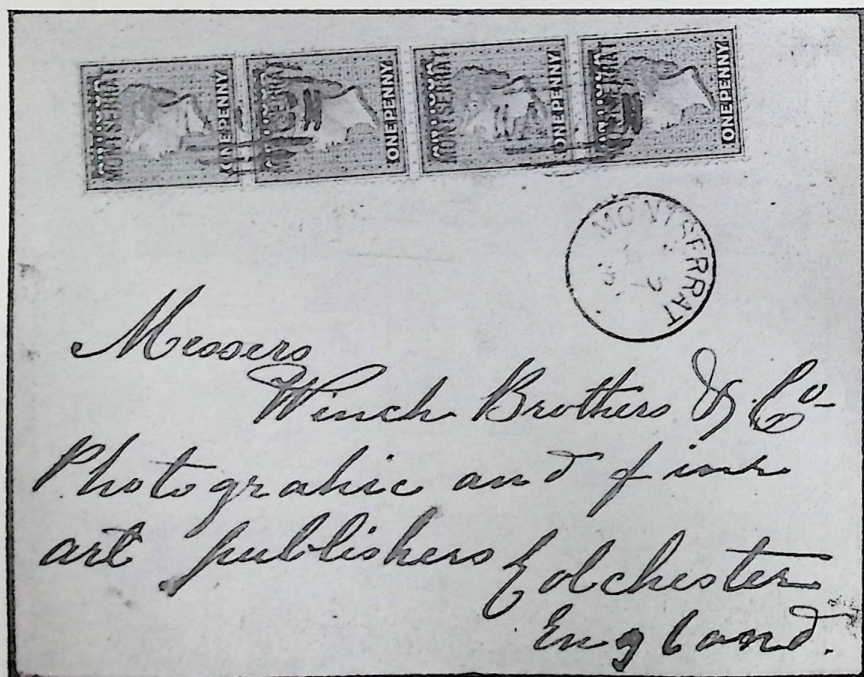 MONTSERRAT ONE PENNY
MONTSERRAT ONE PENNY
MONTSERRAT ONE PENNY
MONTSERRAT ONE PENNY
MONTSERRAT
Messers
Winch Brothers & Co
Photograhic and fine
art publishers Colchester
England.